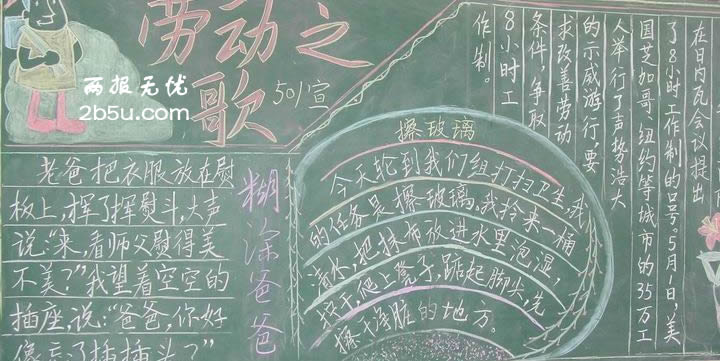 劳动之
歌
501宣
两报无忧
2b5u.com
老爸把衣服放在慰
板上,挥了挥熨斗,大声
说:“来,看师父熨得美
不美?”我望着空空的
插座,说:“爸爸,你好
像忘了插插头?”
糊涂爸爸
擦玻璃
今天轮到我们组打扫卫生,我
的任务是擦玻璃。我拎来一桶
清水,把抹布放进水里泡湿,
拧干,爬上凳子,踮起脚尖,先
擦干净脏的地方。
在日内瓦会议提出
了8小时工作制的口号。5月1日,美
国芝加哥、纽约等城市的35万工
人举行了声势浩大
的示威游行,要
求改善劳动
条件,争取
8小时工
作制。